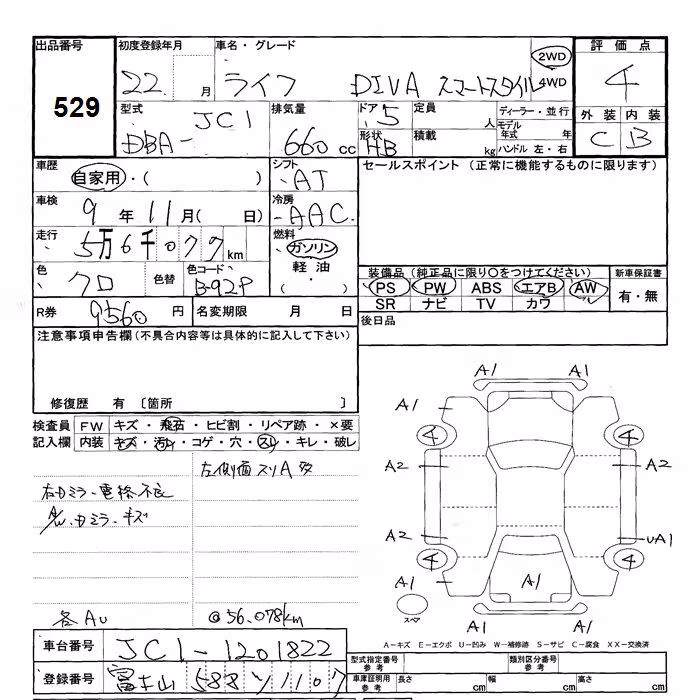 出品番号 初度登録年月 車名・グレード 評価点
529
22. 月 ライフ DIVA スマートスタイル 2WD 4WD 4
型式 排気量 ドア 定員 ディーラー・並行 外装 内装
DBA- JC1 660 cc 5 人 モデル年式 年 C B
形状 積載 HB kg ハンドル 左・右
車歴 シフト セールスポイント (正常に機能するものに限ります)
自家用・( ) AT
車検 冷房
9年11月( 日) AAC
走行 燃料
5万6千077km ガソリン
色 色替 色コード 軽油
クロ B-92P ・( )
装備品(純正品に限り○をつけてください) 新車保証書
PS PW ABS エアB AW 有・無
SR ナビ TV カワ
R券 9560円 名変期限 月 日 後日品
注意事項申告欄(不具合内容等は具体的に記入して下さい)
修復歴 有 〔箇所 〕
検査員 FW キズ・飛石・ヒビ割・リペア跡・×要
記入欄 内装 キズ・汚レ・コゲ・穴・スレ・キレ・破レ
左側面スリA
右カミラー電格不良
A/W.カミラーキズ
各AU @56.078km
A1 A1
A1 A1
4 4
A2 A2
A2 UA1
4 4
A1 A1
A1 A1
スペア
A-キズ E-エクボ U-凹み W-補修跡 S-サビ C-腐食 XX-交換済
車台番号 JC1-1201822
型式指定番号 参考 類別区分番号 参考
登録番号 富士山 588 ソ 1107
車庫証明用 参考 長さ cm 幅 cm 高さ cm